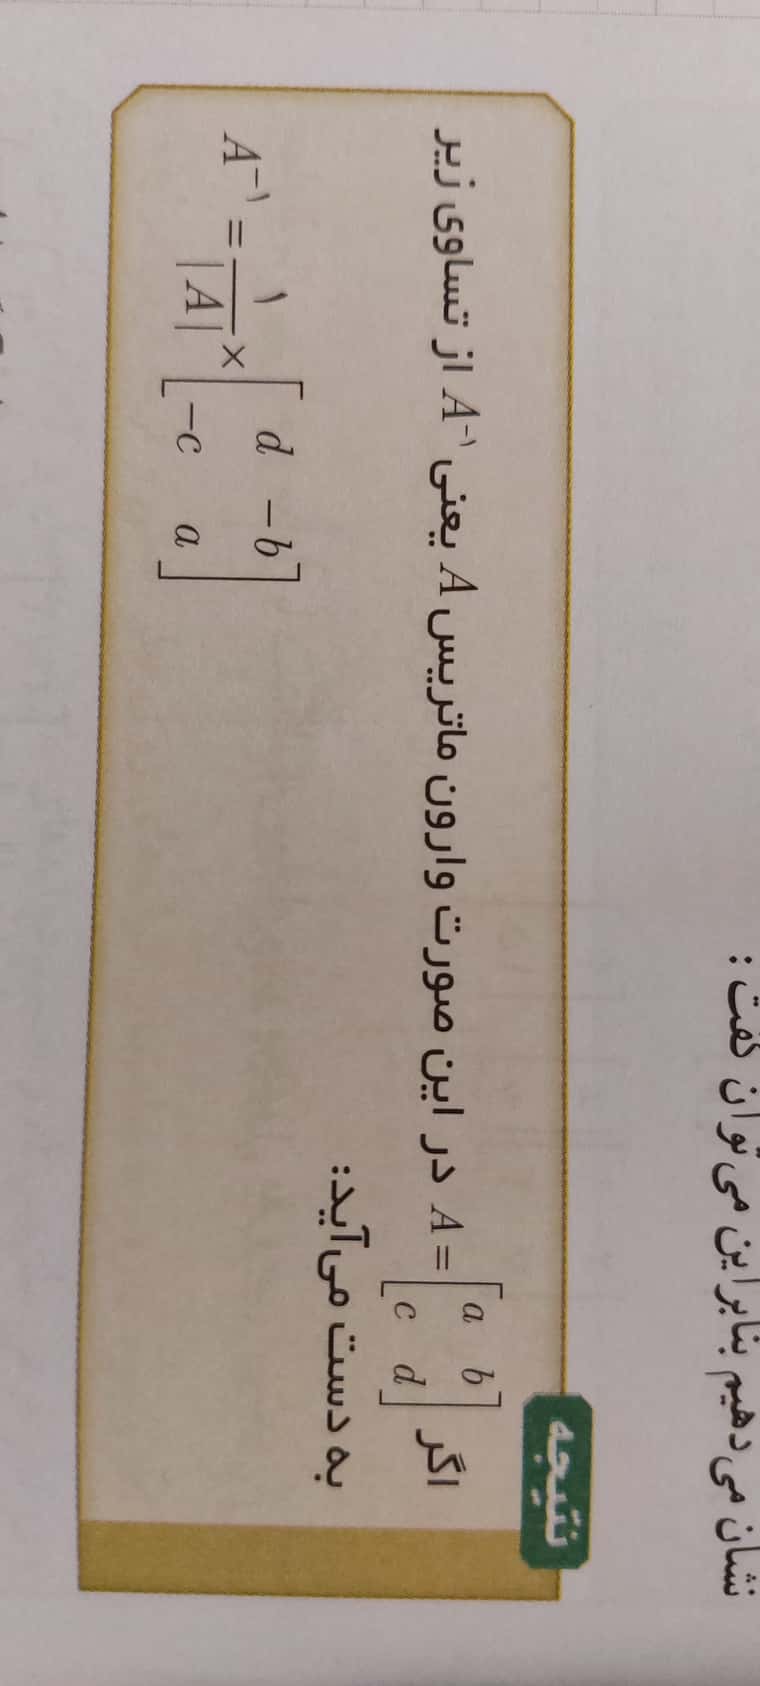 نشان می‌دهیم بنابراین می‌توان گفت :
نتیجه
اگر A = [a b; c d] در این صورت وارون ماتریس A یعنی A⁻¹ از تساوی زیر
به دست می‌آید:
A⁻¹ = ۱/|A| × [d −b; −c a]